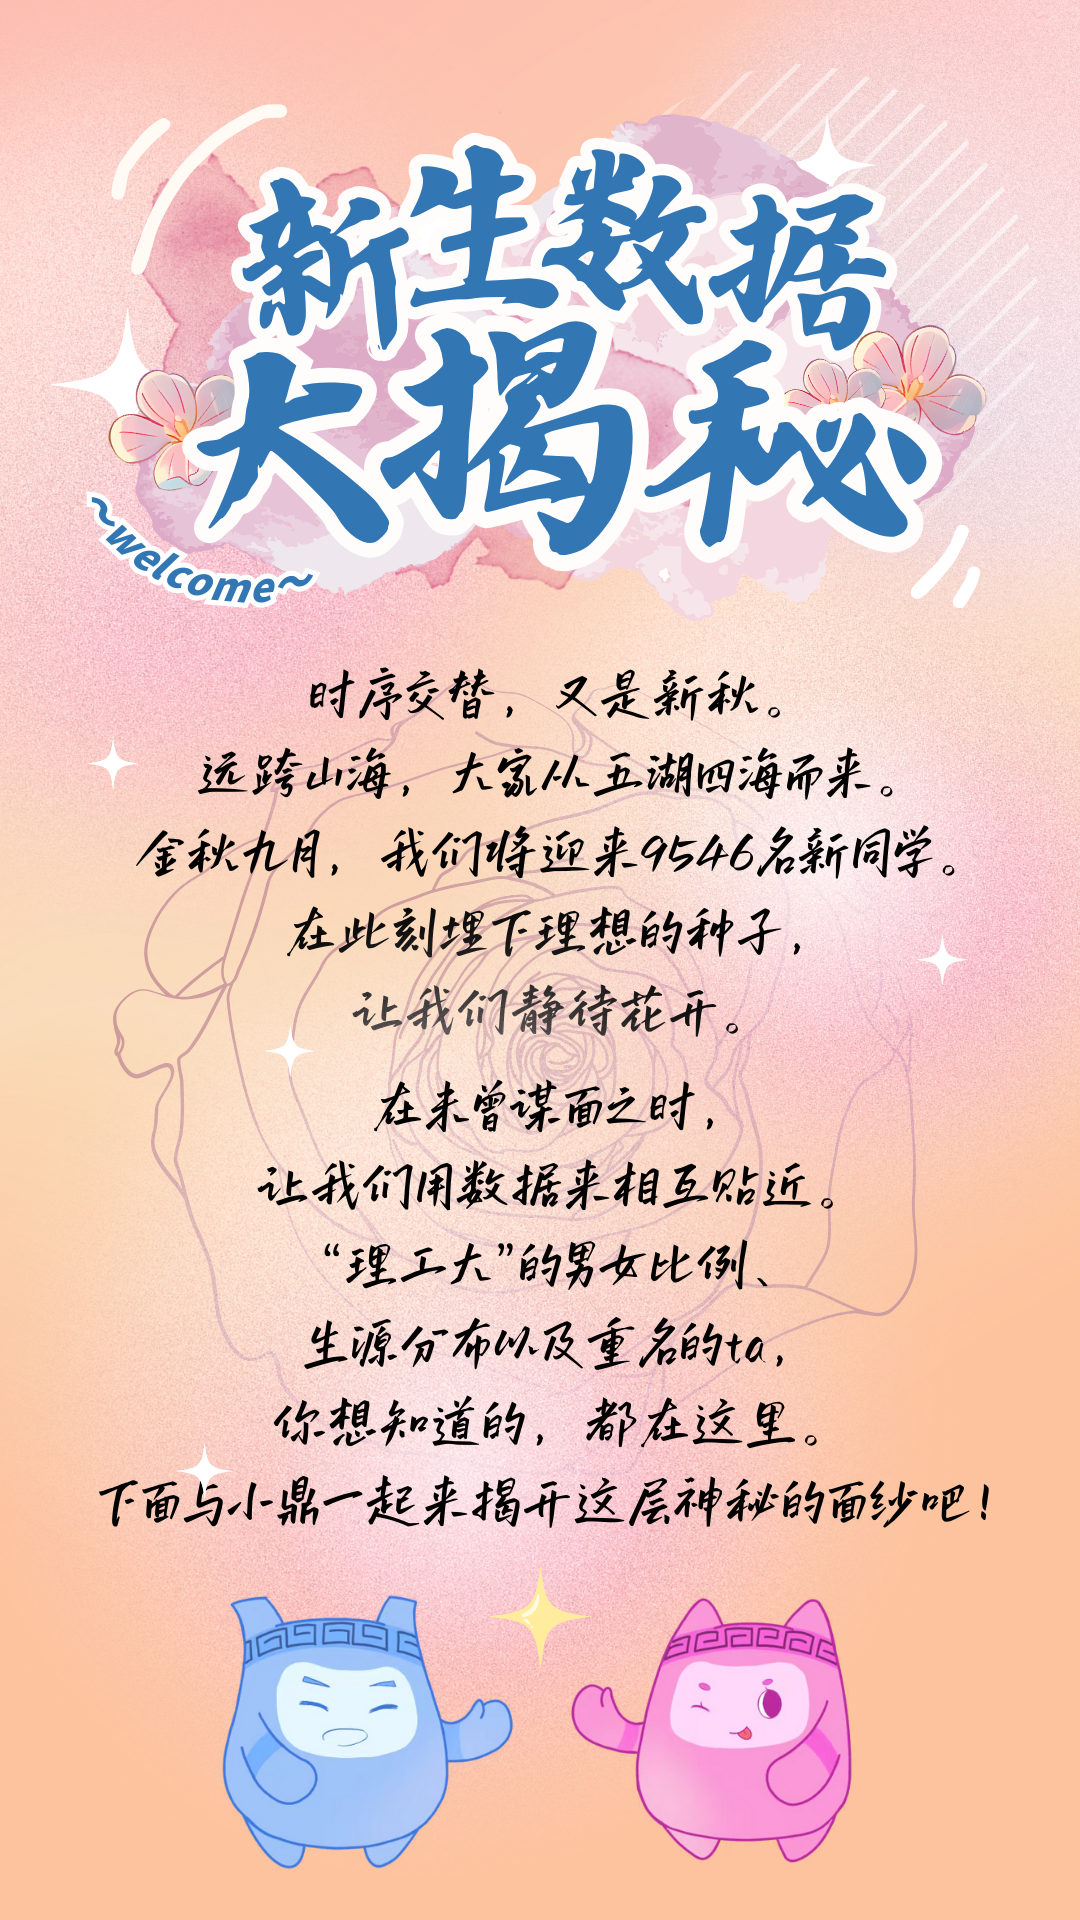 新生数据
大揭秘
~welcome~
时序交替，又是新秋。
远跨山海，大家从五湖四海而来。
金秋九月，我们将迎来9546名新同学。
在此刻埋下理想的种子，
让我们静待花开。
在未曾谋面之时，
让我们用数据来相互贴近。
“理工大”的男女比例、
生源分布以及重名的ta，
你想知道的，都在这里。
下面与小鼎一起来揭开这层神秘的面纱吧！